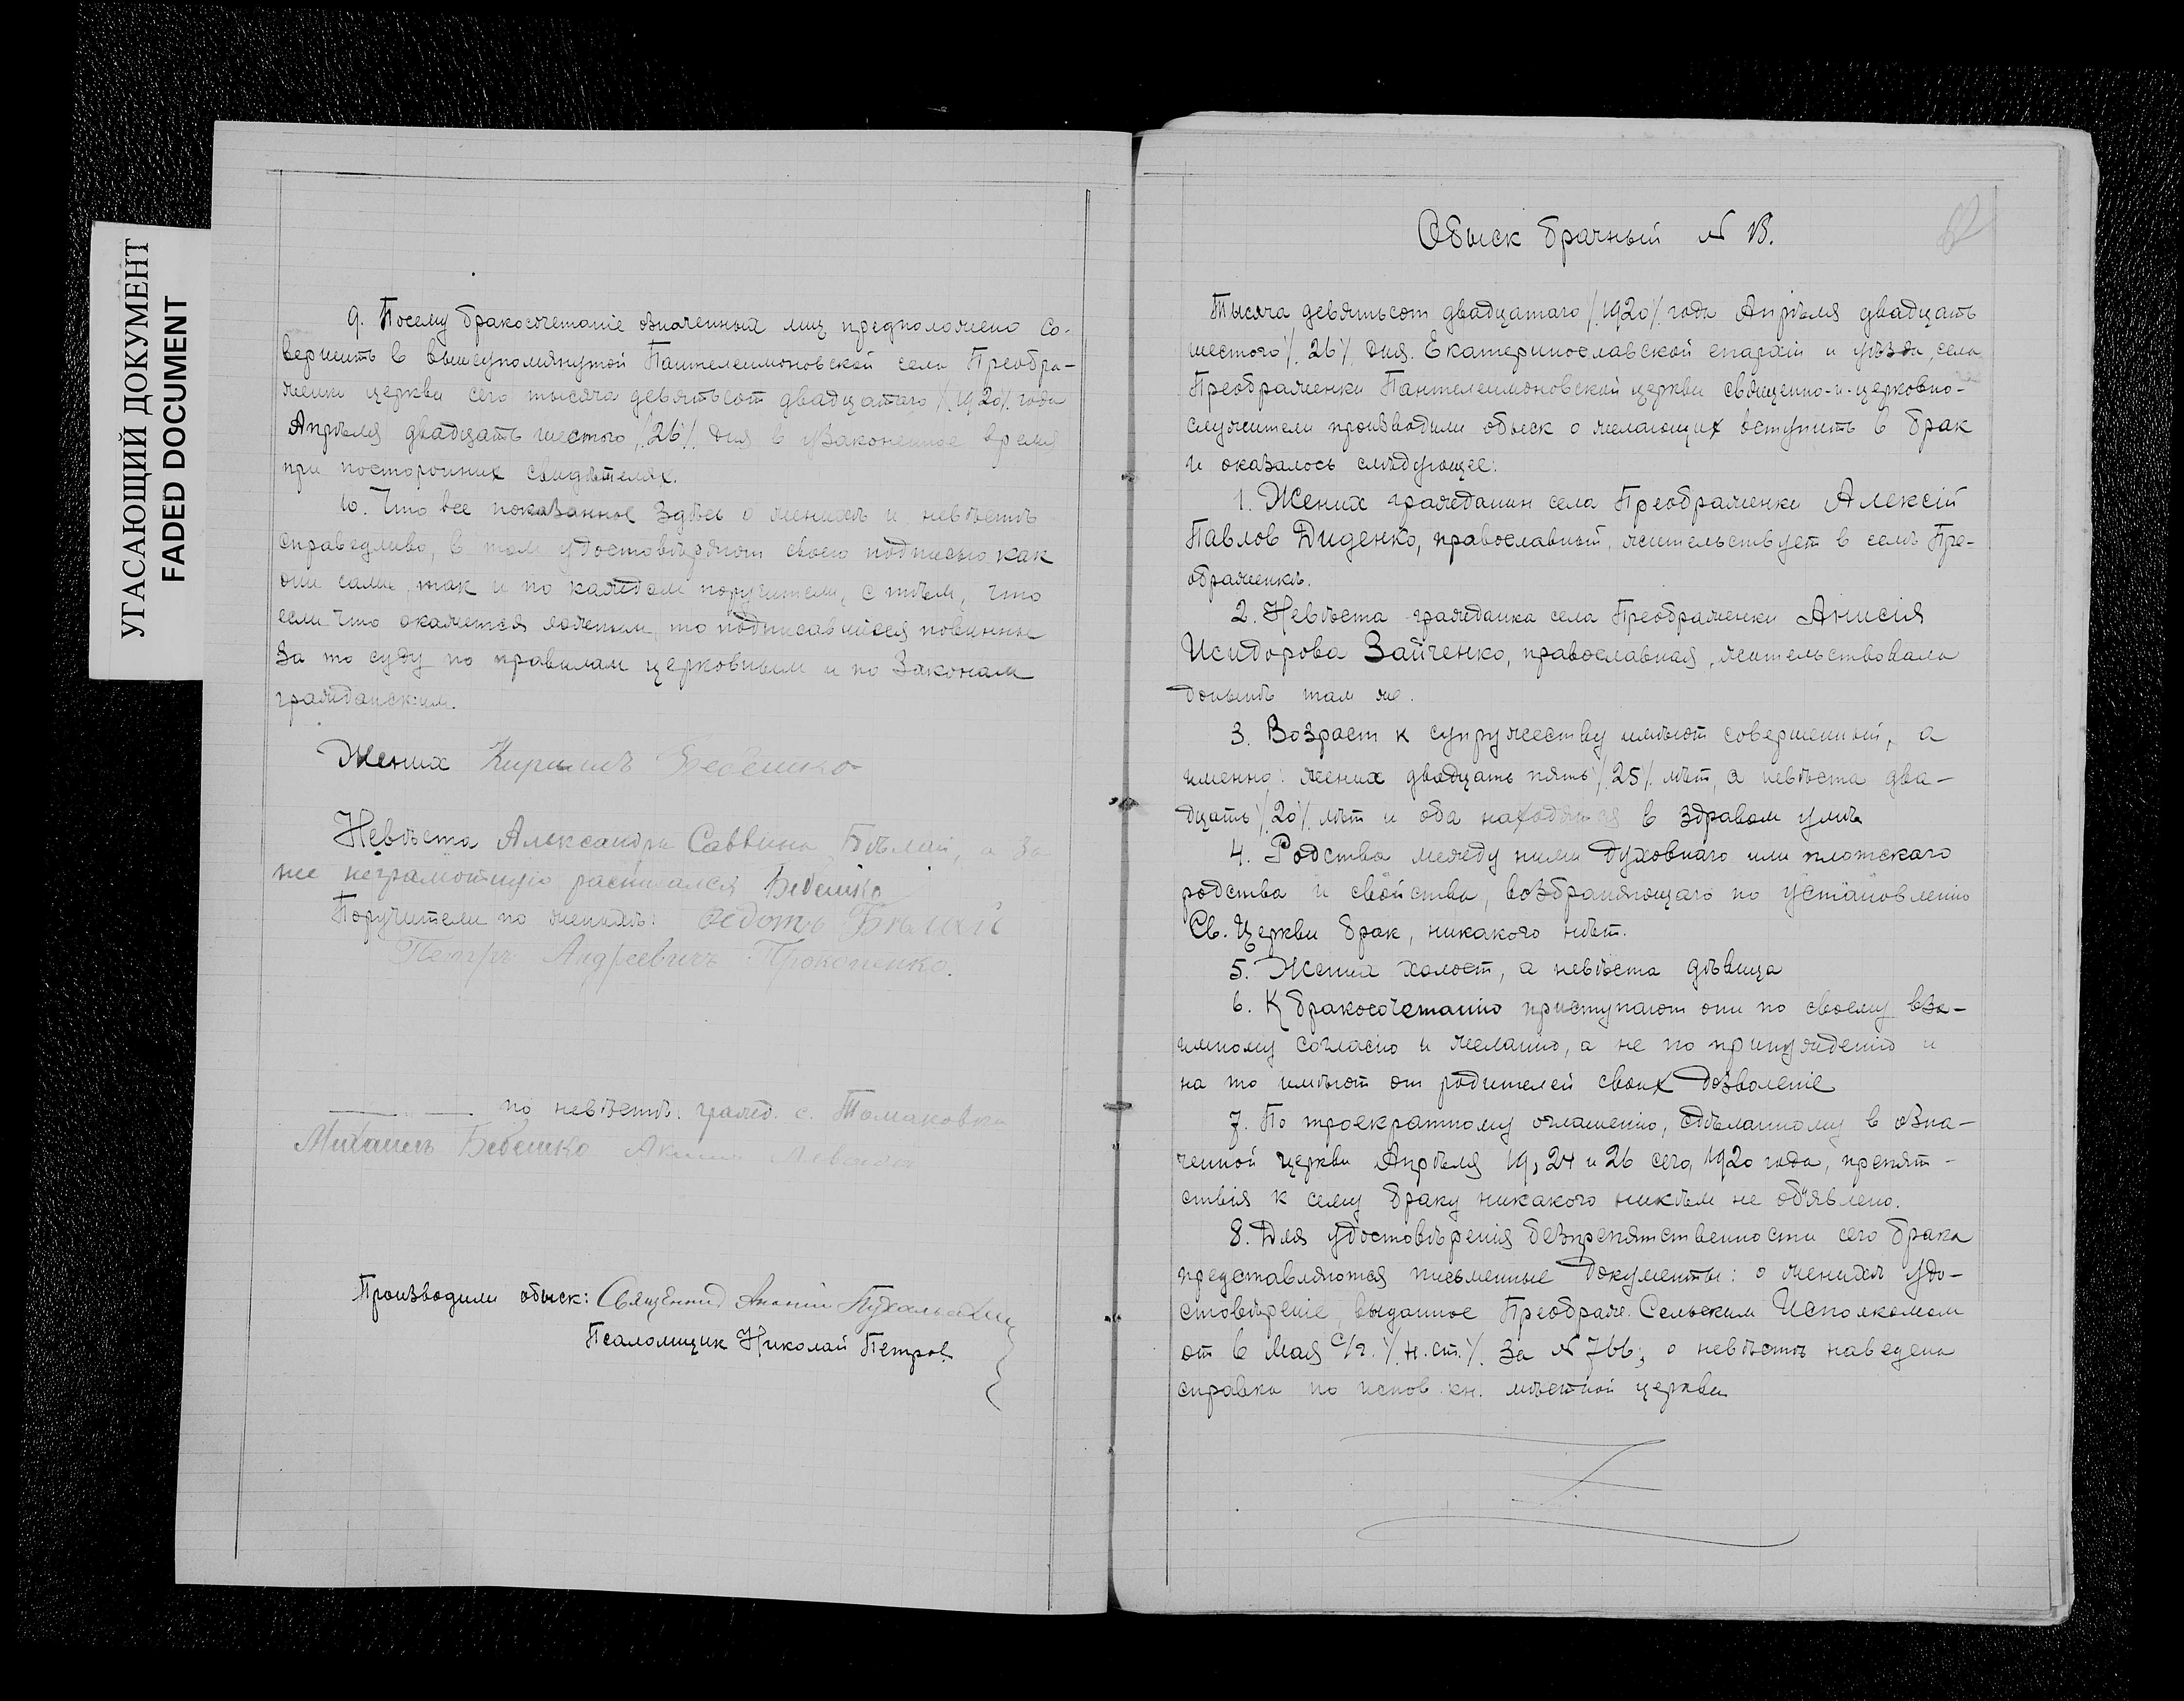 УГАСАЮЩИЙ ДОКУМЕНТ
FADED DOCUMENT
9. Посему бракосочетаніе означенных лиц предположено со-
вершить в вышеупомянутой Пантелеимоновской села Преобра-
женки церкви сего тысяча девятьсот двадцатаго /.1920/. года
Апрѣля двадцать шестого /.26/. дня в узаконенное время
при посторонних свидѣтелях.
10. Что все показанное здѣсь о женихѣ и невѣстѣ
справедливо, в том удостовѣряют своею подписью как
они сами, так и по каждом поручители, с тѣм, что
если что окажется ложным, то подписавшіеся повинны
за то суду по правилам церковным и по законам
гражданским.
Жених Кирилъ Бебешко
Невѣста Александра Саввина Бѣлай, а за
нее неграмотную расписался Бебешко
Поручители по женихѣ: Федотъ Бѣлай
Петръ Андреевичъ Прокопенко.
— " — по невѣстѣ: гражд. с. Томаковки
Михаилъ Бебешко Аким
Производили обыск: Священник Ананій
Псаломщик Николай Петров
Обыск брачный № 13.
Тысяча девятьсот двадцатаго /.1920/. года Апрѣля двадцать
шестого /.26/. дня. Екатеринославской епархіи и уѣзда, села
Преображенки Пантелеимоновской церкви священно-и-церковно-
служители производили обыск о желающих вступить в брак
и оказалось слѣдующее:
1. Жених гражданин села Преображенки Алексій
Павлов Диденко, православный, жительствует в селѣ Пре-
ображенкѣ.
2. Невѣста гражданка села Преображенки Анисія
Исидорова Зайченко, православная, жительствовала
донынѣ там же.
3. Возраст к супружеству имѣют совершенный, а
именно: жених двадцать пять /.25/. лѣт, а невѣста два-
дцать /.20/. лѣт и оба находятся в здравом умѣ
4. Родства между ними духовнаго или плотскаго
родства и свойства, возбраняющаго по установленію
Св. Церкви брак, никакого нѣт.
5. Жених холост, а невѣста дѣвица
6. К бракосочетанію приступают они по своему вза-
имному согласію и желанію, а не по принужденію и
на то имѣют от родителей своих дозволеніе
7. По троекратному оглашенію, сдѣланному в озна-
ченной церкви Апрѣля 19, 24 и 26 сего 1920 года, препят-
ствія к сему браку никакого никѣм не объявлено.
8. Для удостовѣренія безпрепятственности сего брака
представляются письменные документы: о женихѣ удо-
стовѣреніе, выданное Преображ. Сельским Исполкомом
от 6 Мая с/г. /.н.ст./. за № 766; о невѣстѣ наведена
справка по испов. кн. мѣстной церкви